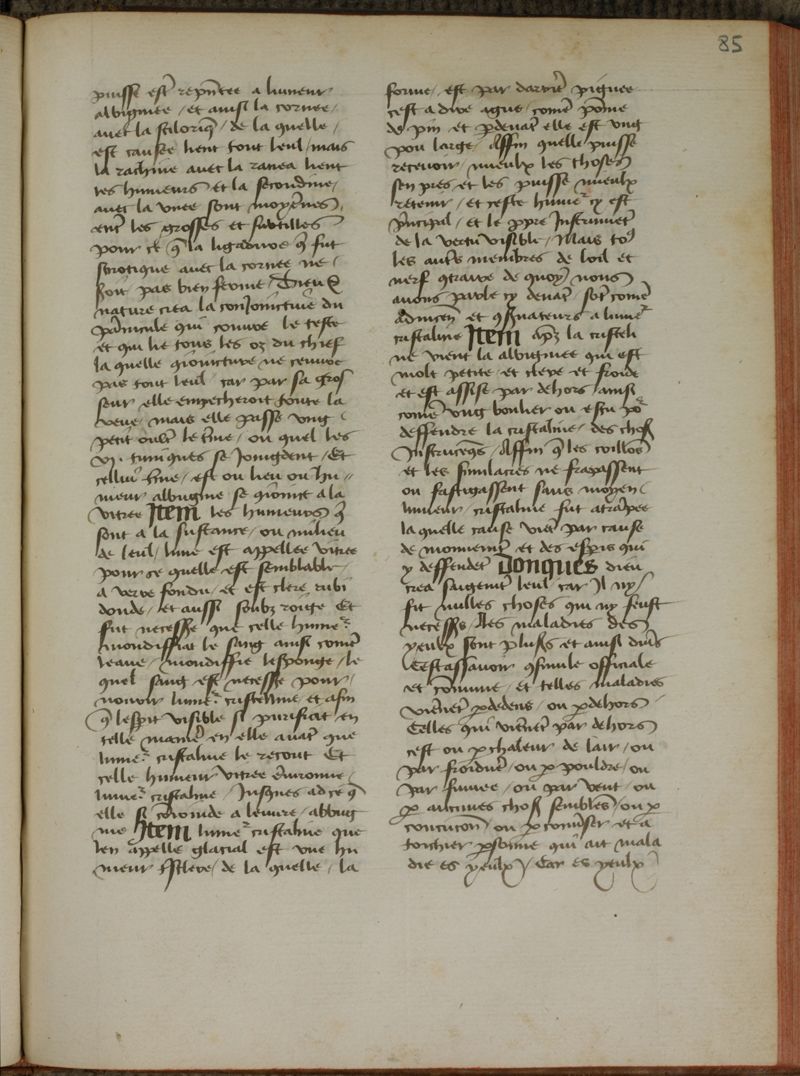 85
puisse estre repñtee a lumeur
albuginee / et aussi la cornee /
auec la sclorique / de la quelle /
est causee lient tout leul / mais
la rachine auec la ranea lient
les humeurs et la secondine /
auec la vuee sont moyẽnes
entre les grosses et subtilles
pour ce q̃ la ligadure q̃ fut
sclrotique auec la cornee ne /
soit pas bien ferme / Dieu &
nature crea la conJoinctiue du
pãnicule qui couure le teste
et qui lie tous les os du chief
la quelle coniucture ne ceuure
pas tout leul / car par sa gros
seur elle empecheroit toute la
veue / mais elle passe vng
petit oultre le line / ou quel les
vj. tuniques se joingdent / Et
celluy line / est ou lieu ou hu //
meur albugine se conioint a la
vitree Item les humeurs q̃
sont a la sustance / ou milieu
de leul / lune est appellee vitree
pour ce quelle est semblable /
a verre fondu / et est clere rubi
donde / et aussi soubz rouge Et
fut necesse que celle humer
mondiffiat le sang ainsi comẽ
leaue / mondiffie lesponge / le
quel sang est necesse pour /
nourir lumeʳ cristeline / et afin
q̃ lesprit visible si purificat en
telle maniere en elle auãt que
lumeʳ cristaline le recout Et
celle humeur vitree ẽuironne /
lumeʳ cristaline / Jusques ad ce q̃
elle si conioinde a leuure / albug
nie Item lumeʳ cristaline que
len appelle glacial est vne hu
meur / de la quelle / la
forme / est par darrieʳ pignee
cest a dire ague / comẽ põme
de pin et p̱deuãt elle est vng
pou large / Affin quelle puisse
receuoir / mieulx les choses
sen pies et les puisse mieulx
retenir / et ceste humeʳ cy est
p̃ncipal / et le p̱pre Instrumẽt
de la vertu visible / Mais toꝰ
les autres membres de loil et
nerf 9traire de quoy nous
auons parle cy deuãt / sõt comẽ
adiuuen et 9seruateurs a lumeʳ
cristaline Item apres la cristeli
ne vient la albuginee qui est
molt petite et clere et froide
et est assise par dehors / ainsi
comẽ vng boulier ou escu poʳ
deffendre la cristaline / des choses
Instruceqs / Affin q̃ les coillons
et les similacres ne frapassent
ou fastigassent sans moyen
lumeur / cristaline fut atrapee
la quelle cause vient par cause
de mouuemẽt et des espris qui
y deffendẽt donques dieu
crea saigemẽt leul car Il ny
fut nulles choses qui ny feust
necesses / Les maladies des
yeulx sont plusieurs et aussi diuers
Cestassauoir 9simile officiale
et cõmune / et telles maladies
viennẽt p̱dedens / ou p̱dehors
Celles qui viennẽt par dehors
cest ou p̱ chaleur de lair / ou
par froidure / ou p̱ pouldre / ou
par fumee / ou par vent / ou
p̱ aucunes choses sembles / ou p̱
concucon / ou p̱ conuser et a
touchier p̱sonne qui ait mala
die es yeulx / Car es yeulx